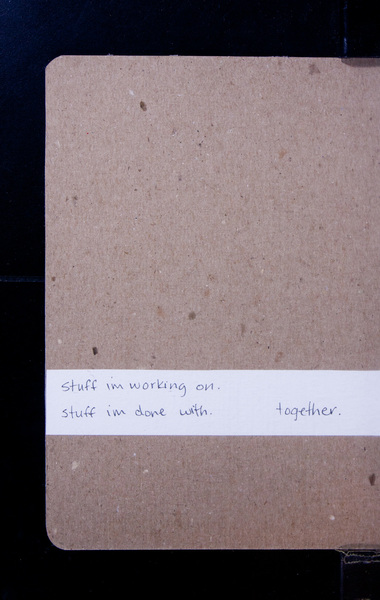 stuff im working on.
stuff im done with. together.